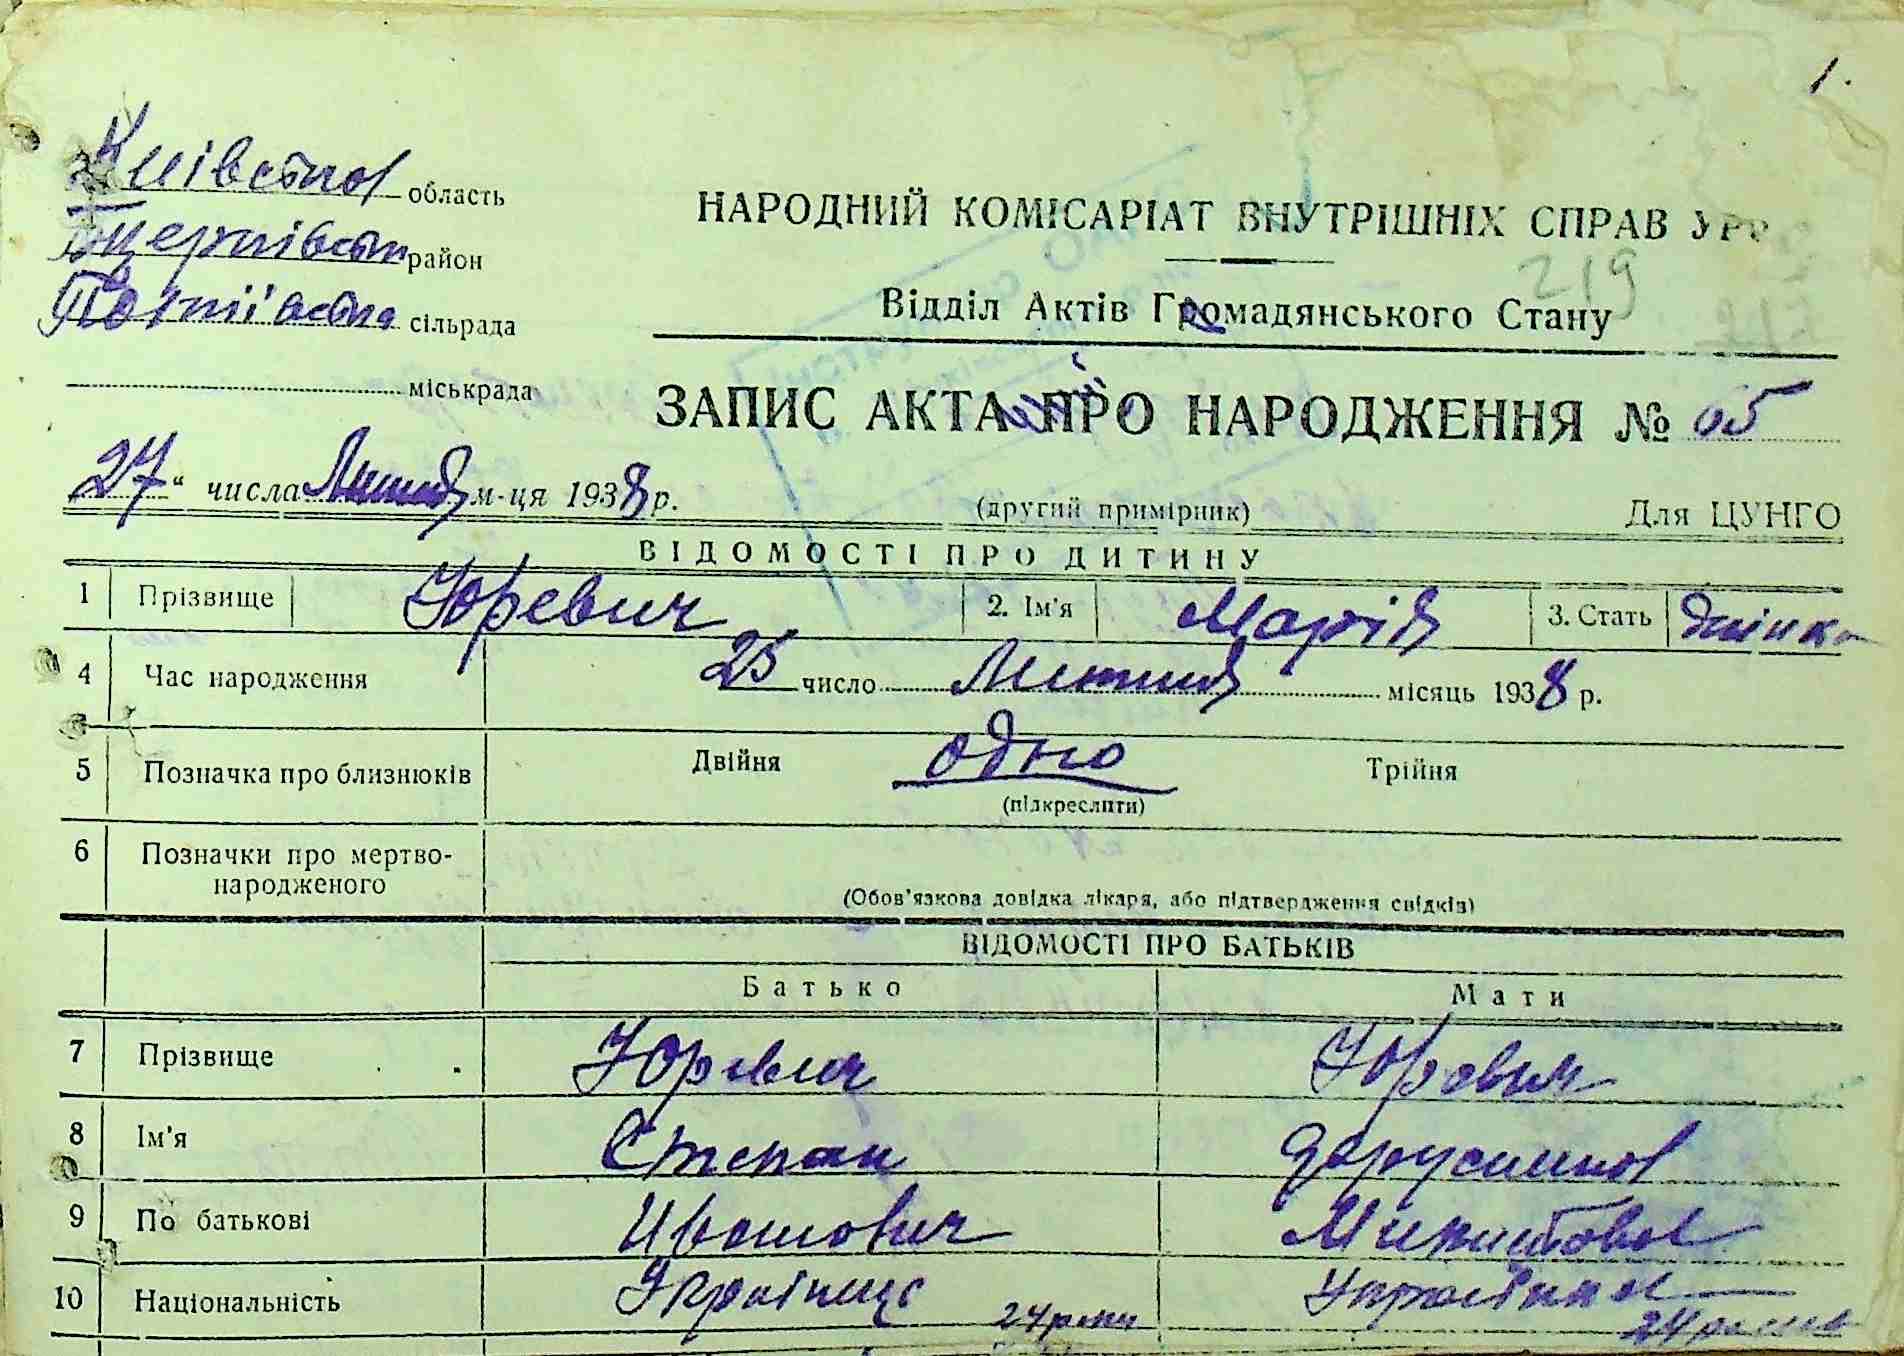 1.
Київська область
район
сільрада
міськрада
НАРОДНИЙ КОМІСАРІАТ ВНУТРІШНІХ СПРАВ УРСР
219
Відділ Актів Громадянського Стану
ЗАПИС АКТА ПРО НАРОДЖЕННЯ № 05
27 " числа Лютого м-ця 1938 р.
(другий примірник) Для ЦУНГО
ВІДОМОСТІ ПРО ДИТИНУ
1 Прізвище Юревич 2. Ім'я Марія 3. Стать жіноча
4 Час народження 25 число місяць 1938 р.
5 Позначка про близнюків Двійня одно Трійня
(підкреслити)
6 Позначки про мертво-
народженого
(Обов'язкова довідка лікаря, або підтвердження свідків)
ВІДОМОСТІ ПРО БАТЬКІВ
Батько Мати
7 Прізвище Юревич Юревич
8 Ім'я Степан
9 По батькові Иванович
10 Національність Українец Українка
24 роки 24 роки